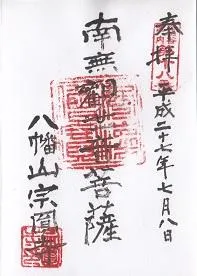 奉拝 平成二十七年七月八日
南無観世音菩薩
八幡山宗圓寺